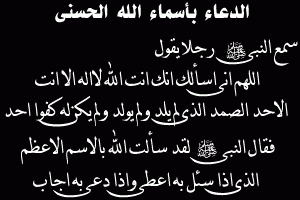 الدعاء بأسماء الله الحسنى
سمع النبي ﷺ رجلا يقول
اللهم انى اسألك انك انت الله لا اله الا انت
الاحد الصمد الذى لم يلد ولم يولد ولم يكن له كفوا احد
فقال النبي ﷺ لقد سألت الله بالاسم الاعظم
الذى اذا سئل به اعطى واذا دعى به اجاب